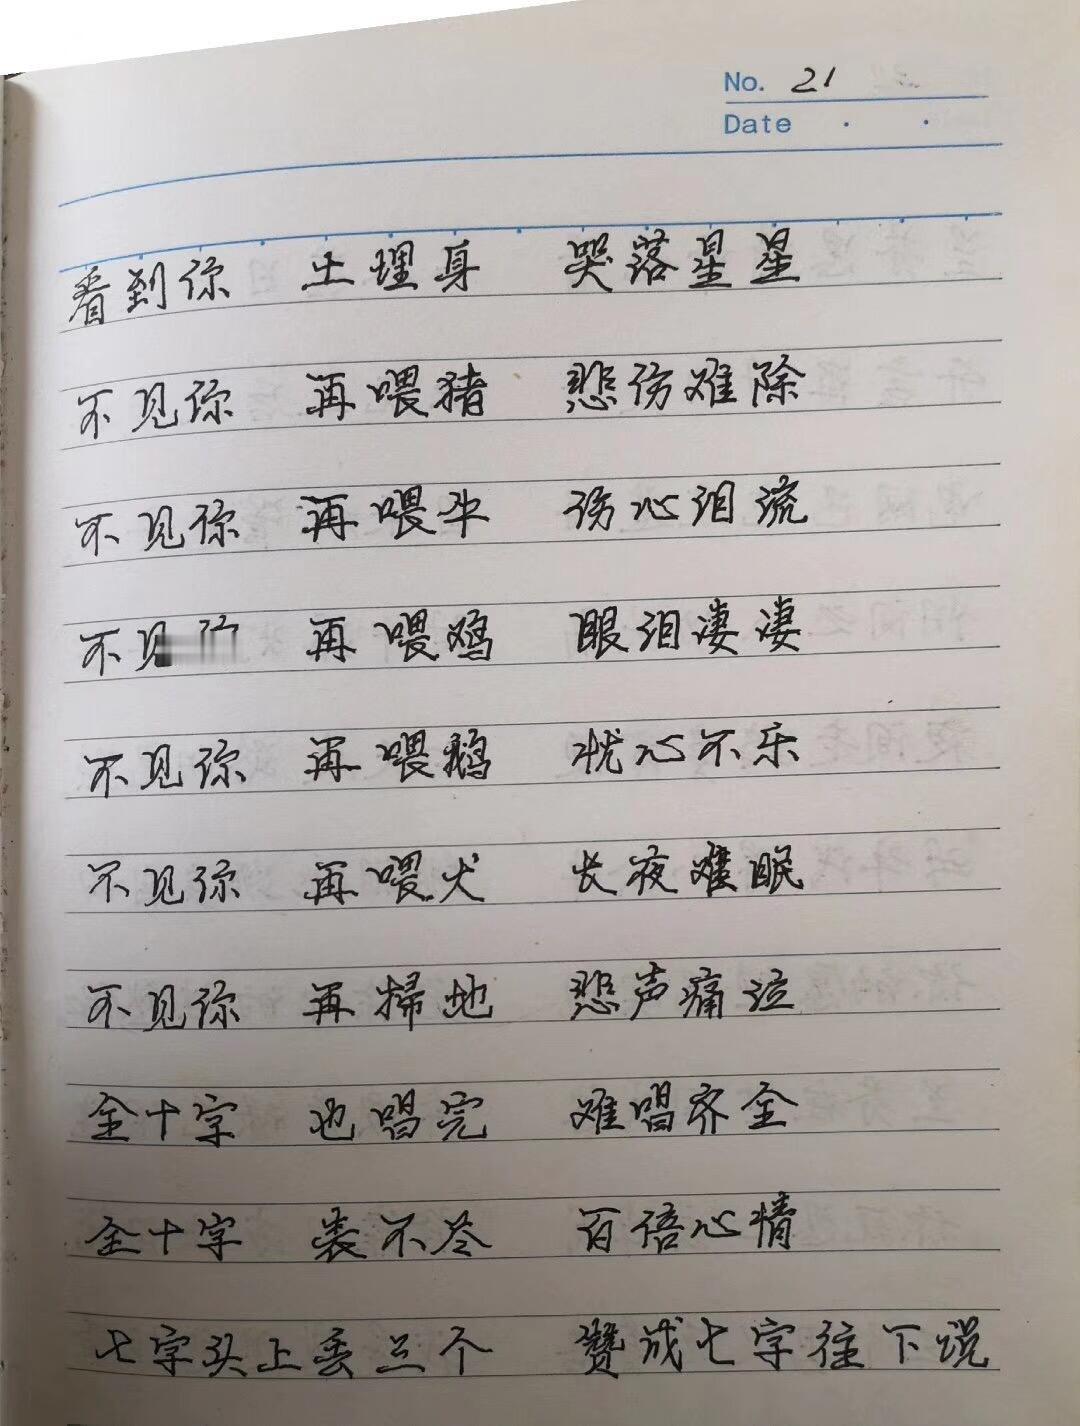 No. 21
Date
看到你 土埋身 哭落星星
不见你 再喂猪 悲伤难除
不见你 再喂牛 伤心泪流
不见 再喂鸡 眼泪凄凄
不见你 再喂鹅 忧心不乐
不见你 再喂犬 长夜难眠
不见你 再掃地 悲声痛泣
全十字 也唱完 难唱齐全
全十字 表不尽 百倍心情
七字头上丢三个 赞成七字往下说